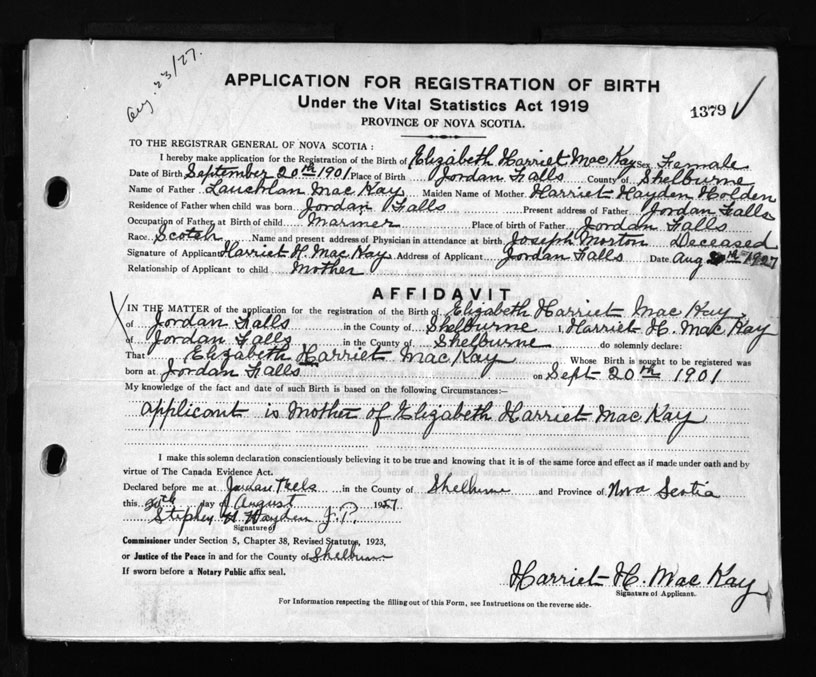 Aug. 23/27.
APPLICATION FOR REGISTRATION OF BIRTH
Under the Vital Statistics Act 1919
1379
PROVINCE OF NOVA SCOTIA.
TO THE REGISTRAR GENERAL OF NOVA SCOTIA :
I hereby make application for the Registration of the Birth of Elizabeth Harriet Mac Kay Sex Female
Date of Birth September 20th 1901 Place of Birth Jordan Falls County of Shelburne
Name of Father Lauchlan Mac Kay Maiden Name of Mother Harriet Hayden Holden
Residence of Father when child was born Jordan Falls Present address of Father Jordan Falls
Occupation of Father at Birth of child Marmer Place of birth of Father Jordan Falls
Race Scotch Name and present address of Physician in attendance at birth Joseph Morton Deceased
Signature of Applicant Harriet H. Mac Kay Address of Applicant Jordan Falls Date Aug 1927
Relationship of Applicant to child Mother
AFFIDAVIT
IN THE MATTER of the application for the registration of the Birth of Elizabeth Harriet Mac Kay
of Jordan Falls in the County of Shelburne I, Harriet H. Mac Kay
of Jordan Falls in the County of Shelburne do solemnly declare:
That Elizabeth Harriet Mac Kay Whose Birth is sought to be registered was
born at Jordan Falls on Sept 20th 1901
My knowledge of the fact and date of such Birth is based on the following Circumstances:—
applicant is Mother of Elizabeth Harriet Mac Kay
I make this solemn declaration conscientiously believing it to be true and knowing that it is of the same force and effect as if made under oath and by
virtue of The Canada Evidence Act.
Declared before me at Jordan Falls in the County of Shelburne and Province of Nova Scotia
this 20th day of August 1927
Stephen H Hayden J.P.
Signature of
Commissioner under Section 5, Chapter 38, Revised Statutes, 1923,
or Justice of the Peace in and for the County of Shelburne
If sworn before a Notary Public affix seal.
Harriet H. Mac Kay
Signature of Applicant.
For Information respecting the filling out of this Form, see Instructions on the reverse side.